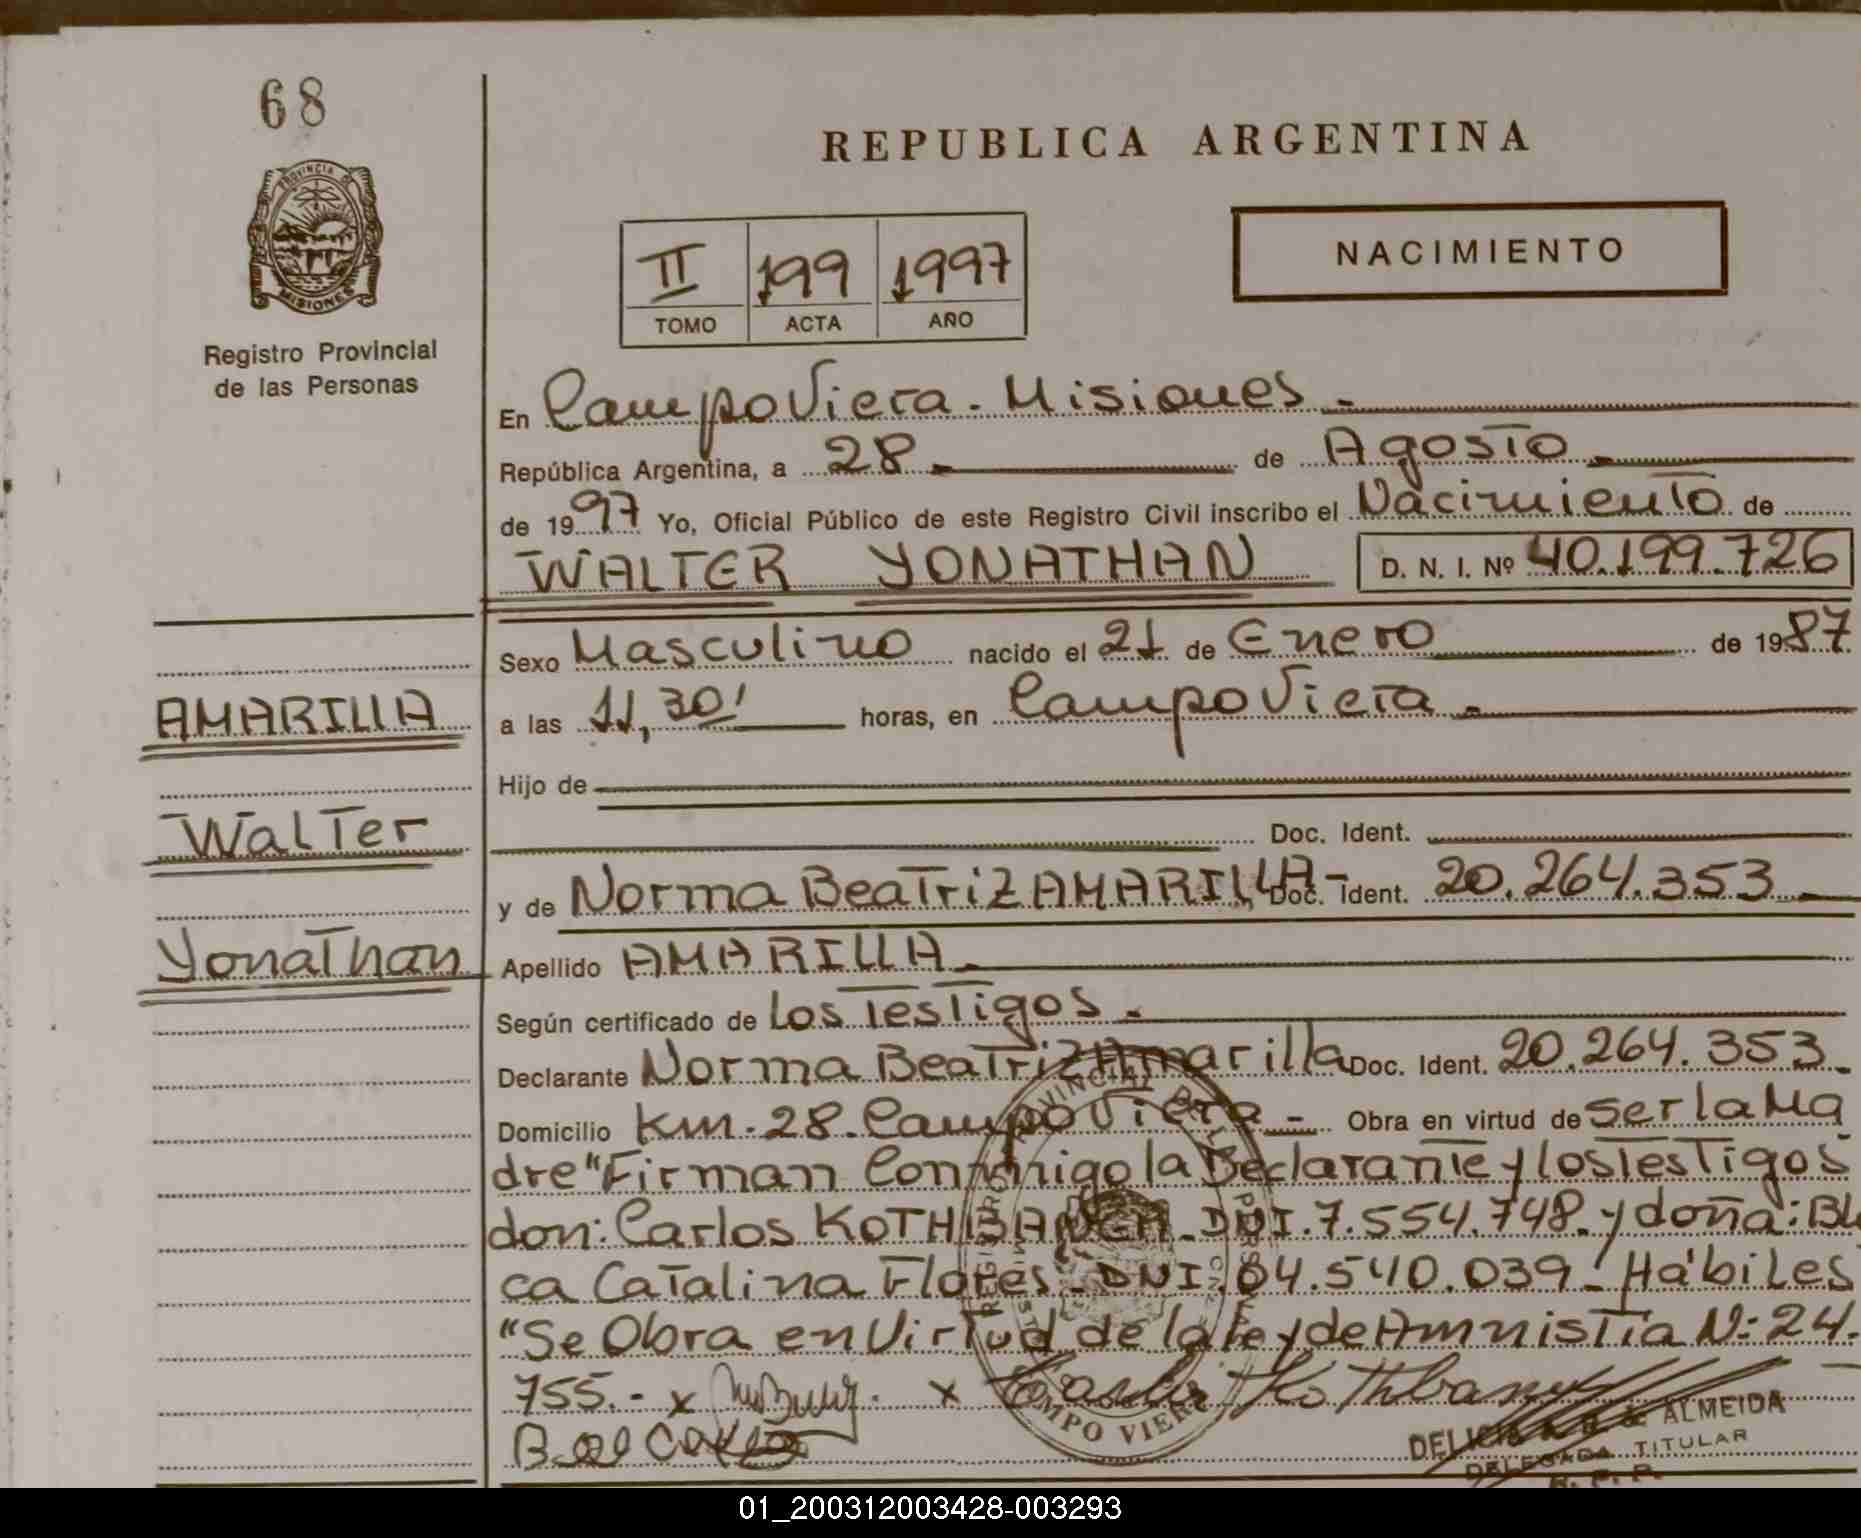 68
REPUBLICA ARGENTINA
PROVINCIA DE
MISIONES
Registro Provincial
de las Personas
II 199 1997
TOMO ACTA AÑO
NACIMIENTO
En Campo Viera - Misiones -
República Argentina, a 28 - de Agosto -
de 1997 Yo, Oficial Público de este Registro Civil inscribo el Nacimiento de
WALTER YONATHAN D. N. I. Nº 40.199.726
Sexo Masculino nacido el 21 de Enero de 1987
AMARILLA
a las 11,30' horas, en Campo Viera -
Hijo de
Walter
Doc. Ident.
y de Norma Beatriz AMARILLA - Doc. Ident. 20.264.353 -
Yonathan
Apellido AMARILLA -
Según certificado de Los Testigos -
Declarante Norma Beatriz Amarilla Doc. Ident. 20.264.353 -
Domicilio Km. 28. Campo Viera - Obra en virtud de ser la Ma
dre "Firman Conmigo la Declarante y los Testigos
don: Carlos KOTHBANGA - DNI. 7.554.748 - y doña: Bl
ca Catalina Flores - DNI. 04.540.039 - Hábiles
"Se Obra en Virtud de la ley de Amnistia N: 24.
755.- x x
DELICIA ALMEIDA
DELEGADA TITULAR
R. P. P.
CAMPO VIERA
01_200312003428-003293